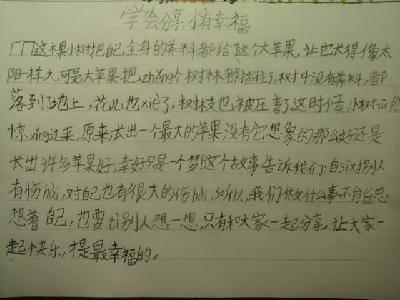 学会分享,才有幸福
这棵小树把自己全身的养料都给这个大苹果,让它长得像太
阳一样大,可是大苹果把zhěng个树林都挡住了,树叶没有养料,都
落到了地上,花儿也xiè了,树枝也被压弯了这时候,小树突然
惊xǐng过来,原来长出一个最大的苹果没有它想象的那么好还是
长出许多苹果好,幸好只是一个梦这个故事告诉我们:自私对别人
有伤hài,对自己也有很大的伤hài,所以,我们做什么事不能总
想着自己,也要为别人想一想,只有和大家一起分享,让大家一
起快乐,才是最幸福的。